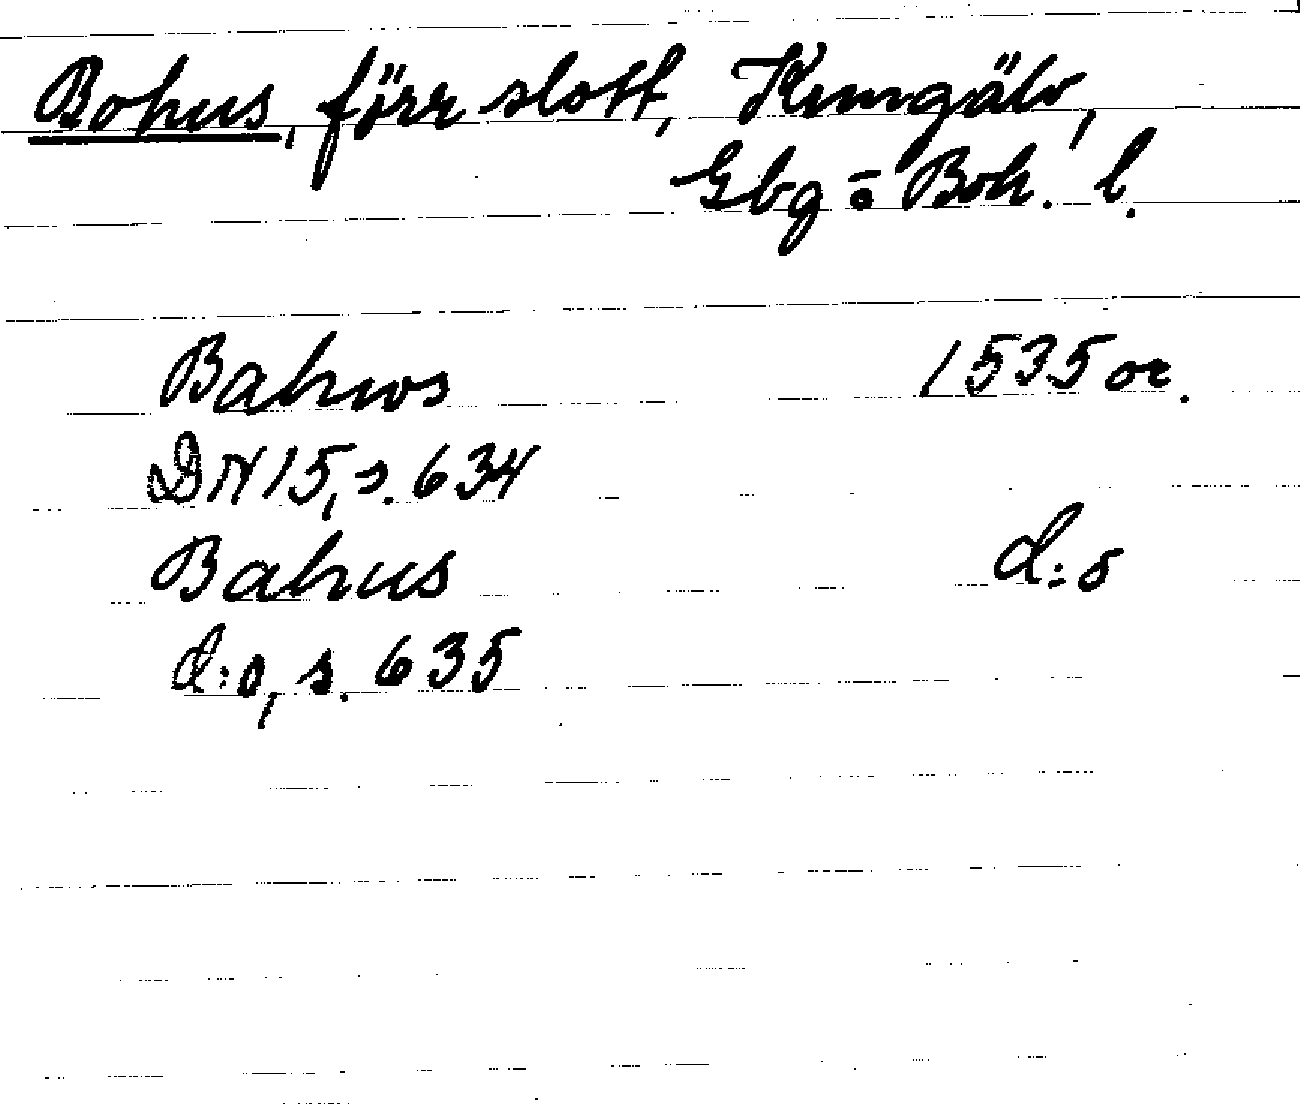 Bohus, förr slott, Kungälv,
Gbg o Boh. l.
Bahws 1535 or.
DN 15, s. 634
Bahus d:o
d:o, s. 635